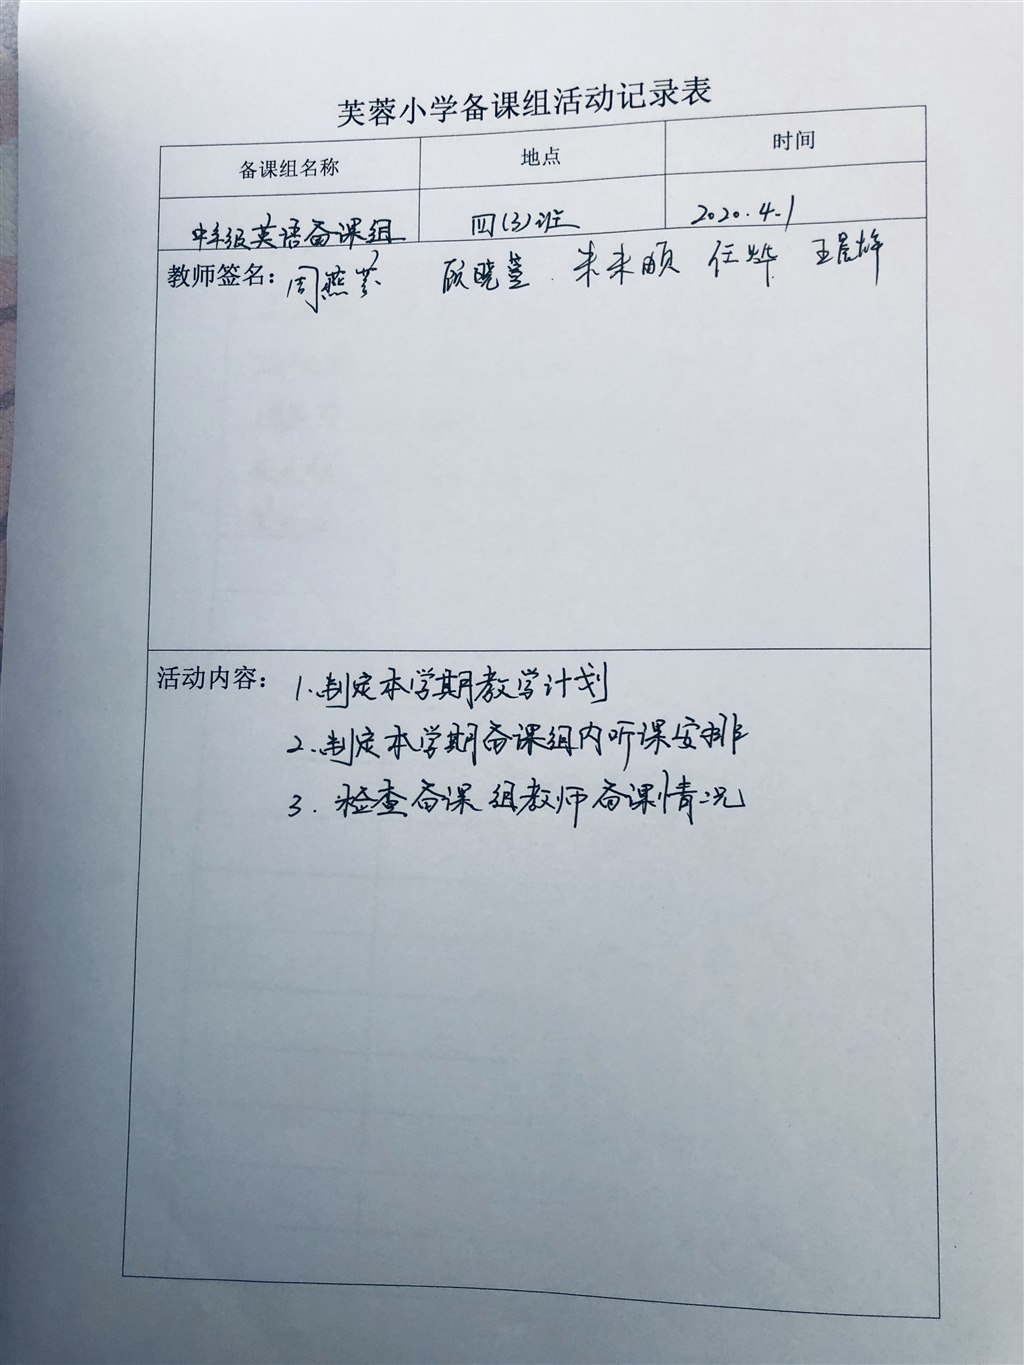 芙蓉小学备课组活动记录表
备课组名称 地点 时间
中年级英语备课组 四(3)班 2020.4.1
教师签名: 周燕芬 顾晓萱 朱未 任烨 王晨烨
活动内容: 1.制定本学期教学计划
2.制定本学期备课组内听课安排
3.检查备课组教师备课情况